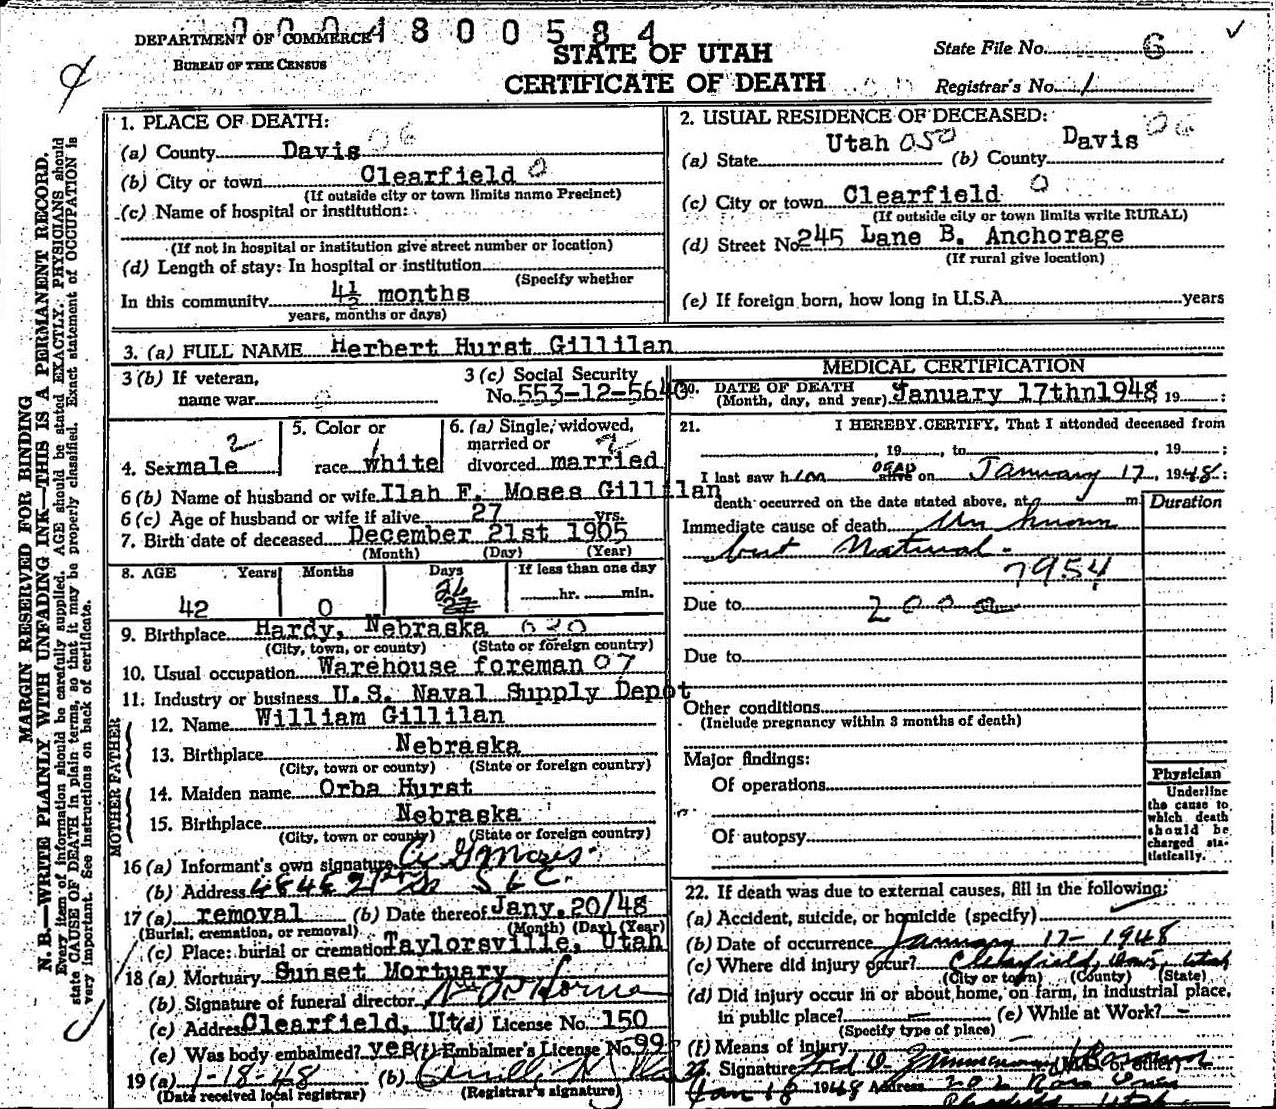 4800584
DEPARTMENT OF COMMERCE
BUREAU OF THE CENSUS
STATE OF UTAH
CERTIFICATE OF DEATH
State File No. 6
Registrar's No. 1
MARGIN RESERVED FOR BINDING
N. B.—WRITE PLAINLY, WITH UNFADING INK—THIS IS A PERMANENT RECORD.
Every item of information should be carefully supplied. AGE should be stated EXACTLY. PHYSICIANS should
state CAUSE OF DEATH in plain terms, so that it may be properly classified. Exact statement of OCCUPATION is
very important. See instructions on back of certificate.
1. PLACE OF DEATH: 06
(a) County Davis
(b) City or town Clearfield 0
(If outside city or town limits name Precinct)
(c) Name of hospital or institution:
(If not in hospital or institution give street number or location)
(d) Length of stay: In hospital or institution
(Specify whether
In this community 4½ months
years, months or days)
2. USUAL RESIDENCE OF DECEASED:
(a) State Utah 050 (b) County Davis 06
(c) City or town Clearfield 0
(If outside city or town limits write RURAL)
(d) Street No. 245 Lane B. Anchorage
(If rural give location)
(e) If foreign born, how long in U.S.A. years
3. (a) FULL NAME Herbert Hurst Gillilan
3 (b) If veteran,
name war 0
3 (c) Social Security
No. 553-12-5640
4. Sex male 2
5. Color or
race white 1
6. (a) Single, widowed,
married or
divorced married 2
6 (b) Name of husband or wife Ilah F. Moses Gillilan
6 (c) Age of husband or wife if alive 27 yrs.
7. Birth date of deceased December 21st 1905
(Month) (Day) (Year)
8. AGE Years Months Days If less than one day
42 0 26 27 hr. min.
9. Birthplace Hardy, Nebraska 620
(City, town, or county) (State or foreign country)
10. Usual occupation Warehouse foreman 07
11. Industry or business U.S. Naval Supply Depot
FATHER
12. Name William Gillilan
13. Birthplace Nebraska
(City, town or county) (State or foreign country)
MOTHER
14. Maiden name Orba Hurst
15. Birthplace Nebraska
(City, town or county) (State or foreign country)
16 (a) Informant's own signature
(b) Address S L C.
17 (a) removal (b) Date thereof Jany. 20/48
(Burial, cremation, or removal) (Month) (Day) (Year)
(c) Place: burial or cremation Taylorsville, Utah
18 (a) Mortuary Sunset Mortuary
(b) Signature of funeral director
(c) Address Clearfield, Ut (d) License No. 150
(e) Was body embalmed? yes (f) Embalmer's License No. 99
19 (a) 1-18-48 (b)
(Date received local registrar) (Registrar's signature)
MEDICAL CERTIFICATION
20. DATE OF DEATH
(Month, day, and year) January 17thn1948 19 :
21. I HEREBY CERTIFY, That I attended deceased from
, 19 , to , 19 ;
I last saw him dead alive on January 17, 1948:
death occurred on the date stated above, at m
Duration
Immediate cause of death Unknown
but Natural.
7954
Due to 200
Due to
Other conditions
(Include pregnancy within 3 months of death)
Major findings:
Of operations
Of autopsy
Physician
Underline
the cause to
which death
should be
charged sta-
tistically.
22. If death was due to external causes, fill in the following:
(a) Accident, suicide, or homicide (specify)
(b) Date of occurrence January 17-1948
(c) Where did injury occur? Clearfield, Davis, Utah
(City or town) (County) (State)
(d) Did injury occur in or about home, on farm, in industrial place,
in public place? — (e) While at Work? —
(Specify type of place)
(f) Means of injury
23. Signature Fred D. Zimmerman (M.D. or other)
Jan 18 1948 Address
Clearfield Utah